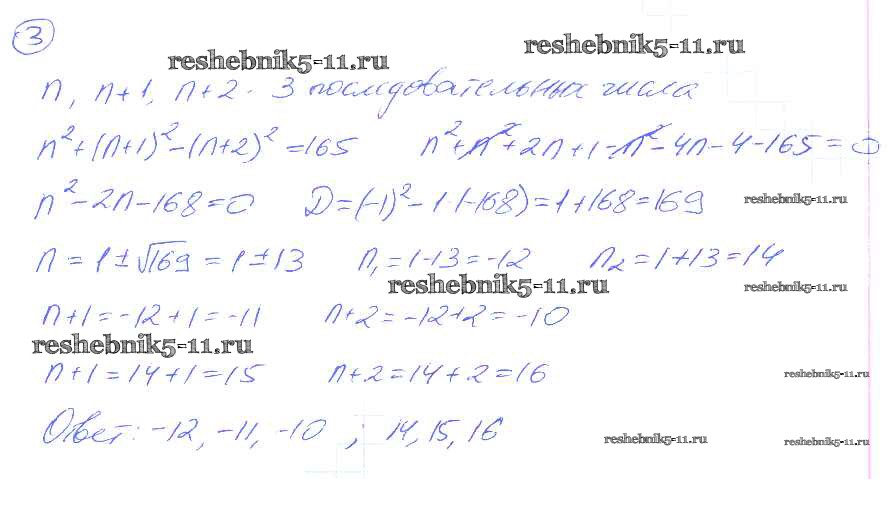 3
reshebnik5-11.ru reshebnik5-11.ru
n, n+1, n+2 - 3 последовательных числа
n²+(n+1)²-(n+2)²=165 n²+n²+2n+1-n²-4n-4-165=0
n²-2n-168=0 D=(-1)²-1·(-168)=1+168=169 reshebnik5-11.ru
n=1±√169=1±13 n₁=1-13=-12 n₂=1+13=14
reshebnik5-11.ru reshebnik5-11.ru
n+1=-12+1=-11 n+2=-12+2=-10
reshebnik5-11.ru
n+1=14+1=15 n+2=14+2=16 reshebnik5-11.ru
Ответ: -12, -11, -10 ; 14, 15, 16
reshebnik5-11.ru reshebnik5-11.ru